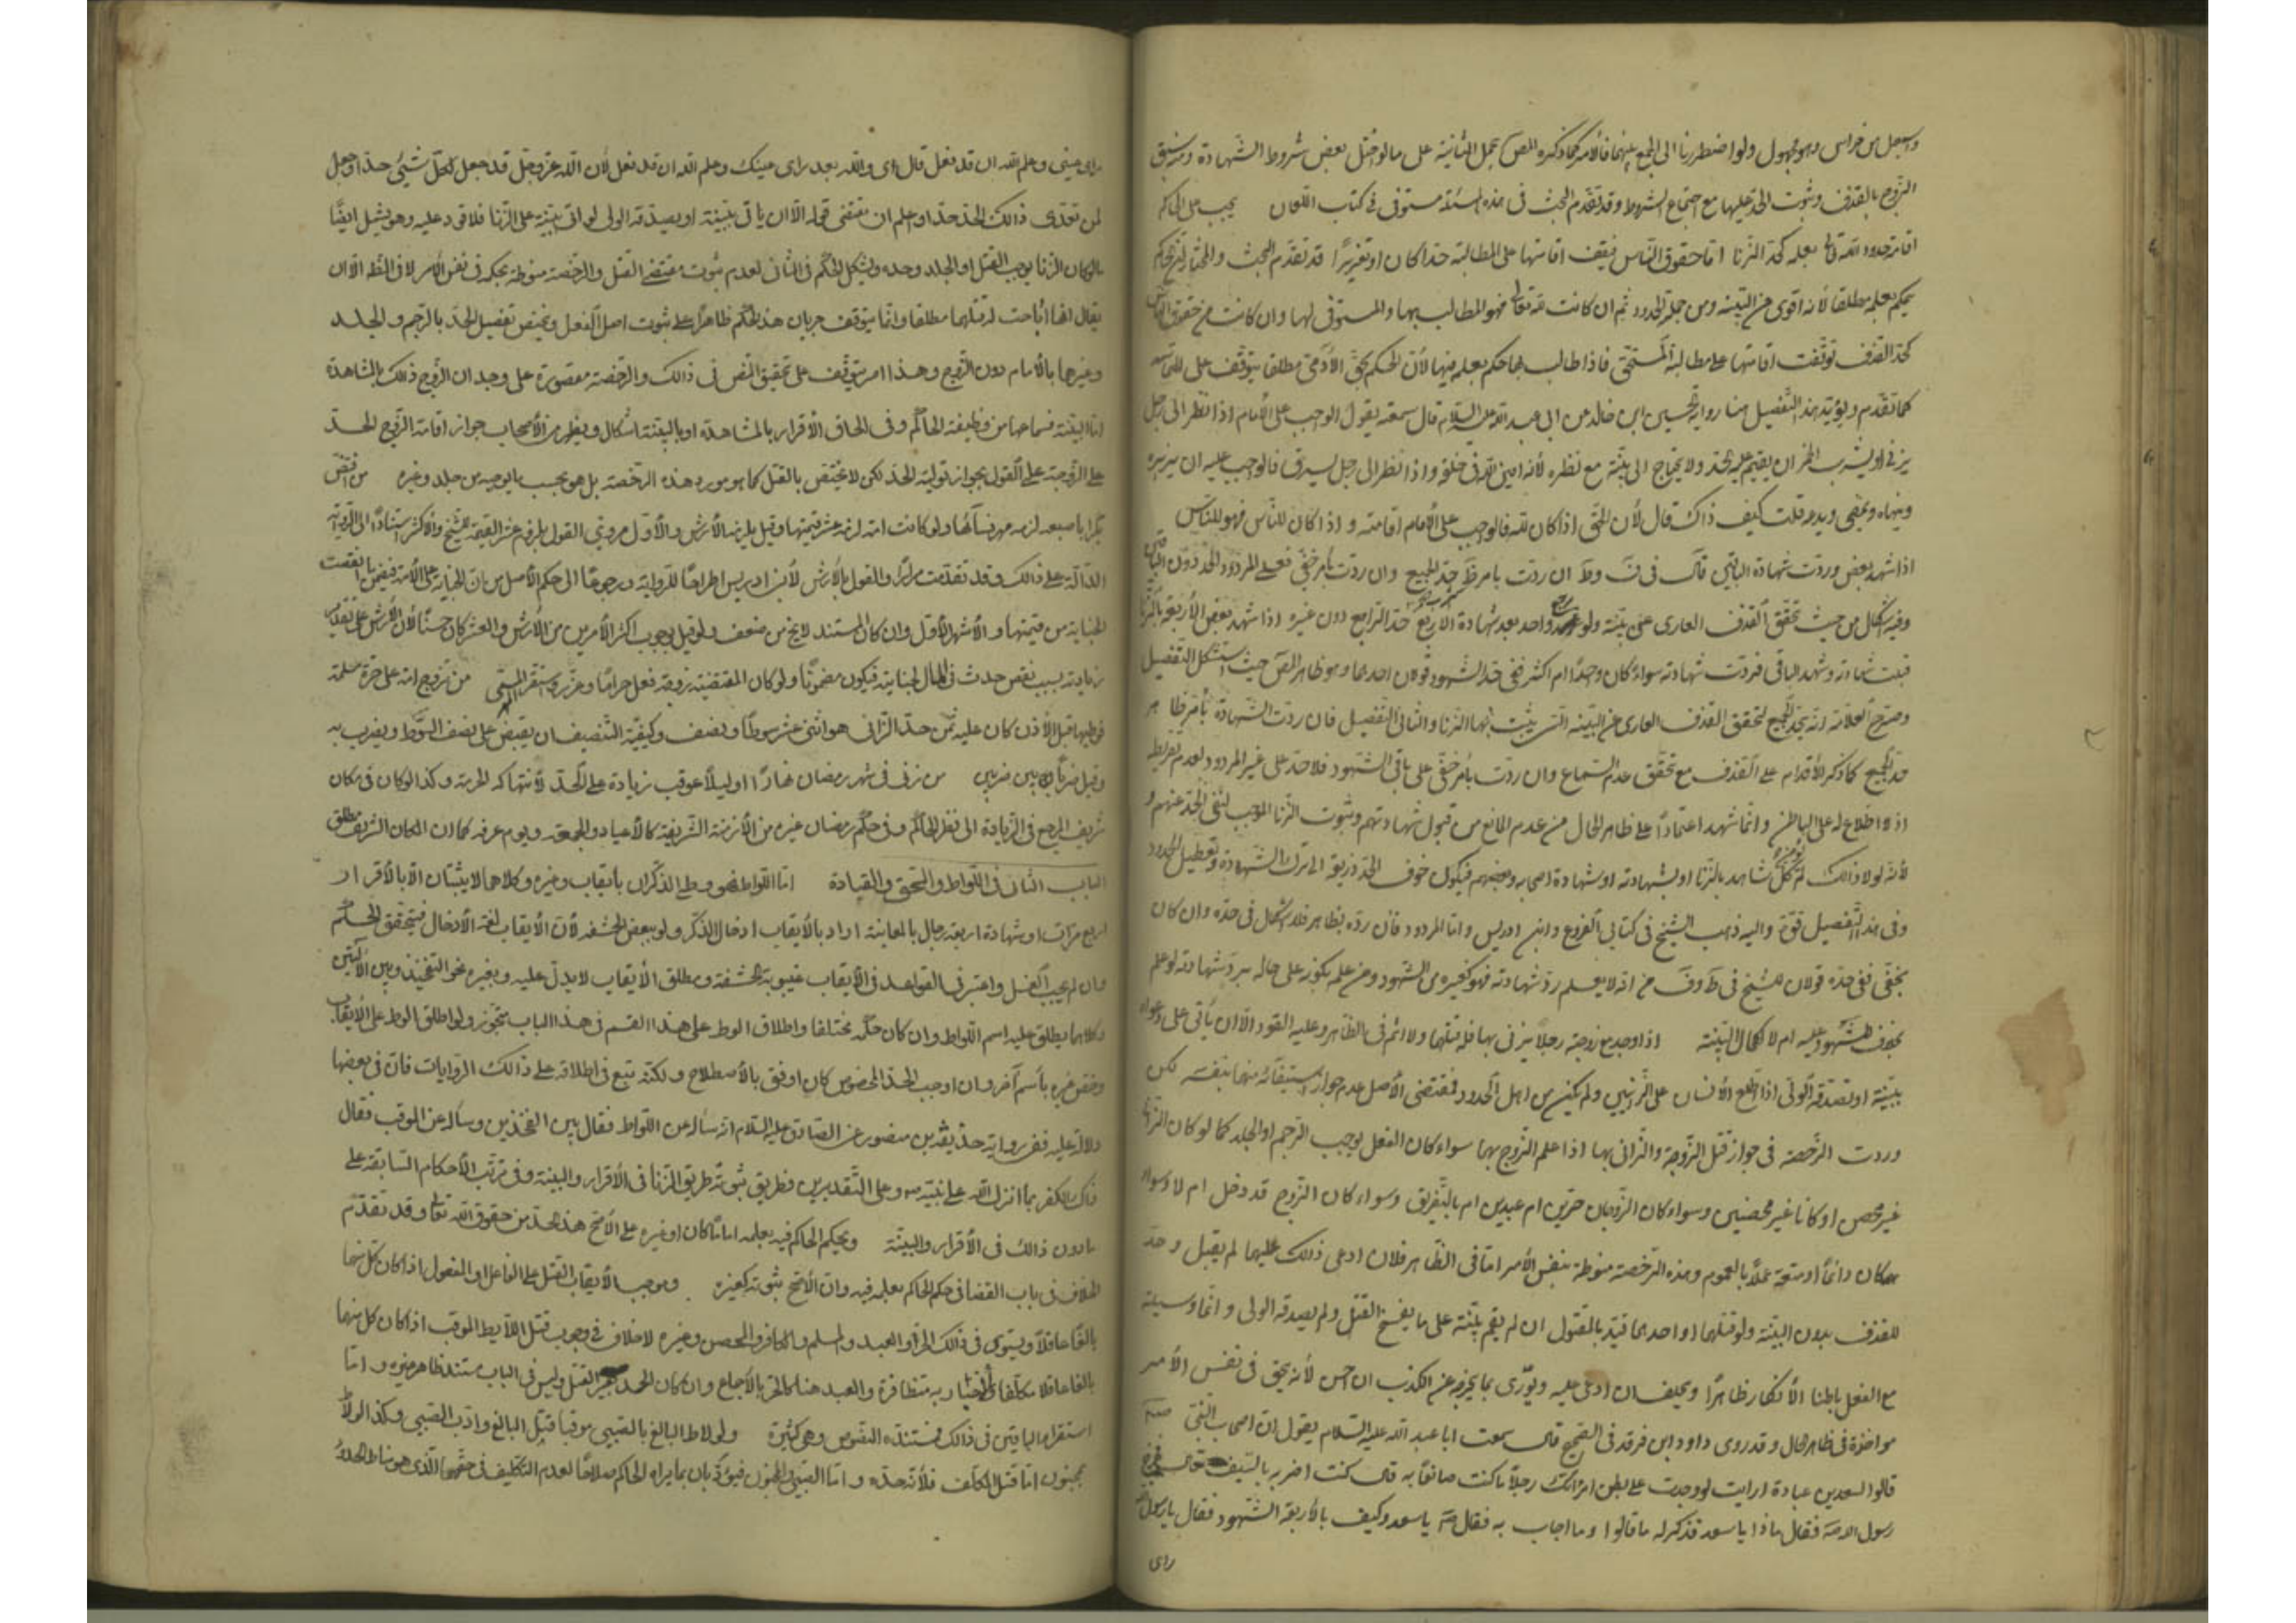 واسمعيل بن خراش وهو مجهول ولو اضطررنا الى الجمع بينهما فالأمر كما ذكره المص بحمل الثانية على ما لو اختل بعض شروط الشهادة ومنه سبق
الزوج بالقذف وثبوت الحد عليها مع اجتماع الشروط وقد تقدم البحث في هذه المسئلة مستوفى في كتاب اللعان يجب على الحاكم
اقامة حدود الله تع بعلمه كحد الزنا اما حقوق الناس فيقف اقامتها على المطالبة حدا كان او تعزيرا قد تقدم البحث والمختار ان الحاكم
يحكم بعلمه مطلقا لأنه اقوى من البينة ومن جملته الحدود ثم ان كانت لله تعالى فهو المطالب بها والمستوفى لها وان كانت من حقوق الناس
كحد القذف توقفت اقامتها على مطالبة المستحق فاذا طالب بها حكم بعلمه فيها لأن الحكم بحق الآدمي مطلقا يتوقف على التماسه
كما تقدم ويؤيد هذا التفصيل هنا رواية الحسين ابن خالد عن ابى عبد الله عليه السلام قال سمعته يقول الواجب على الأمام اذا نظر الى رجل
يزنى او يشرب الخمر ان يقيم عليه الحد ولا يحتاج الى بينة مع نظره لأنه امين الله في خلقه واذا نظر الى رجل يسرق فالواجب عليه ان يزبره
وينهاه ويمضى ويدعه قلت كيف ذاك قال لأن الحق اذا كان لله فالواجب على الأمام اقامته واذا كان للناس فهو للناس
اذا شهد بعض وردت شهادة الباقين قال في ف وط ان ردت بامر ظ حد الجميع وان ردت بامر خفى فعلى المردود الحد دون الباقين
وفيه اشكال من حيث تحقق القذف العارى عن بينة ولو رجع واحد بعد شهادة الأربع حد الراجع دون غيره اذا شهد بعض الأربعة بالزنا
قبلت شهادته وشهد الباقى فردت شهادته سواء كان واحدا ام اكثر ففى حد الشهود قولان احدهما وهو ظاهر المص حيث استشكل التفصيل
وصرح العلامة انه يحد الجميع لتحقق القذف العارى عن البينة التى يثبت بها الزنا والثاني التفصيل فان ردت الشهادة بأمر ظاهر
حد الجميع كما ذكر لأقدامه على القذف مع تحقق عدم السماع وان ردت بأمر خفى على باقى الشهود فلا حد على غير المردود لعدم تفريطه
اذ لا اطلاع له على الباطن وانما شهد اعتمادا على ظاهر الحال من عدم المانع من قبول شهادتهم وثبوت الزنا الموجب لنفى الحد عنهم و
لأنه لولا ذلك كل شاهد بالزنا او بشهادته او شهادة اصحابه وبعضهم فيكون خوف الحد ذريعة الى ترك الشهادة وتعطيل الحدود
وفى هذا التفصيل قوة واليه ذهب الشيخ في كتابى الفروع وابن ادريس واما المردود فان رده بظاهر فلا اشكال في حده وان كان
بخفى ففى حده قولان للشيخ في ط وف من انه لا يعلم رد شهادته فهو كغيره من الشهود ومن علمه بكونه على حاله يرد شهادته لو علم
بخلاف الشهود عليه ام لا لكمال البينة اذا وجد مع زوجته رجلا يزنى بها فله قتلهما ولا اثم فى الظاهر وعليه القود الا ان يأتى على دعواه
ببينة او يصدقه الولى اذا اطلع الأنسان على الزانيين ولم يكن من اهل الحدود فمقتضى الأصل عدم جواز استيفائه منهما بنفسه لكن
وردت الرخصة فى جواز قتل الزوجة والزانى بها اذا علم الزوج بهما سواء كان الفعل يوجب الرجم او الجلد كما لو كان الزانى
غير محصن او كانا غير محصنين وسواء كان الزوجان حرين ام عبدين ام بالتفريق وسواء كان الزوج قد دخل ام لا وسواء
كان دائما او متعة عملا بالعموم وهذه الرخصة منوطة بنفس الأمر اما فى الظاهر فلان ادعى ذلك عليهما لم يقبل وحد
للقذف بدون البينة ولو قتلهما او احدهما قيد بالمقتول ان لم يقم بينة على ما يفسخ القتل ولم يصدقه الولى وانما وسيلته
مع الفعل باطنا الأنكار ظاهرا ويحلف ان ادعى عليه ويورى بما يخرجه عن الكذب ان احسن لأنه محق فى نفس الأمر
مواخذة فى ظاهر الحال وقد روى داود ابن فرقد فى الصحيح قال سمعت ابا عبد الله عليه السلام يقول ان اصحاب النبى صلعم
قالوا لسعد بن عبادة ارايت لو وجدت على بطن امراتك رجلا ما كنت صانعا به قال كنت اضربه بالسيف قال فخرج
رسول الله ص فقال ماذا يا سعد فذكر له ما قالوا وما اجاب به فقال ص يا سعد وكيف بالأربعة الشهود فقال يا رسول الله
راى
راى عينى وعلم الله ان قد فعل قال اى والله بعد راى عينك وعلم الله ان قد فعل لأن الله عز وجل قد جعل لكل شيئ حدا وجعل
لمن تعدى ذالك الحد حدا واعلم ان مقتضى قوله الا ان ياتى ببينة او يصدقه الولى لو اتى ببينة على الزنا فلا قود عليه وهو يشمل ايضا
ما لو كان الزنا يوجب القتل او الجلد وحده ويشكل الحكم فى الثانى لعدم ثبوت مقتضى القتل والرخصة منوطة بحكمه فى نفس الأمر لا فى الظ الا ان
يقال انها اباحت له قتلهما مطلقا وانما يتوقف جريان هذا الحكم ظاهرا على ثبوت اصل الفعل ويختص تفصيل الحد بالرجم والجلد
وغيرها بالأمام دون الزوج وهذا امر يتوقف على تحقيق النص فى ذالك والرخصة مقصورة على وجدان الزوج ذالك بالمشاهدة
اما البينة فسماعها من وظيفة الحاكم وفى الحاق الأقرار بالمشاهدة او بالبينة اشكال ويظهر من الأصحاب جواز اقامة الزوج الحد
على الزوجة على القول بجواز توليته الحد لكن لا يختص بالقتل كما هو مورد هذه الرخصة بل هو بحسب ما يوجبه من جلد وغيره من افتض
بكرا باصبعه لزمه مهر نسائها ولو كانت امة لزمه عشر قيمتها وقيل يلزمه الأرش والأول مروى القول بلزوم عشر القيمة للشيخ والأكثر استنادا الى الرواية
الدالة على ذالك وقد تقدمت مرارا والقول بالأرش لأبن ادريس اطراحا للرواية ورجوعا الى حكم الأصل من ان الجناية على الأمة فيضمن ما نقصت
الجناية من قيمتها والأشهر الأول وان كان المستند لا يخ من ضعف ولو قيل بوجوب اكثر الأمرين من الأرش والعشر كان حسنا لأن الأرش على تقدير
زيادته بسبب نقص حدث فى المال بجنايته فيكون مضمونا ولو كان المقتضية زوجة فعل حراما وعزر واستقر المسمى من تزوج امة على حرة مسلمة
فوطيها قبل الأذن كان عليه ثمن حد الزانى هو اثنى عشر سوطا ونصف وكيفية التنصيف ان يقبض على نصف السوط ويضرب به
وقيل ضربا بين ضربين من زنى فى شهر رمضان نهارا او ليلا عوقب زيادة على الحد لأنتهاكه الحرمة وكذا لو كان فى مكان
شريف المرجع فى الزيادة الى نظر الحاكم وفى حكم رمضان غيره من الأزمنة الشريفة كالأعياد والجمعة ويوم عرفه كما ان المكان الشريف مطلق
الباب الثانى فى اللواط والسحق والقيادة اما اللواط فهو وطى الذكران بأيقاب وغيره وكلاهما لا يثبتان الا بالأقرار
اربع مرات او شهادة اربعة رجال بالمعاينة اراد بالأيقاب ادخال الذكر ولو ببعض الحشفه لأن الأيقاب لغة الأدخال فيتحقق الحكم
وان لم يجب الغسل واعتبر فى القواعد فى الأيقاب غيبوبة الحشفة ومطلق الأيقاب لا يدل عليه وبغيره نحو التفخيذ وبين الأليتين
وكلاهما يطلق عليه اسم اللواط وان كان حكمه مختلفا واطلاق الوط على هذا القسم فى هذا الباب يتجوز ولو اطلق الوط على الأيقاب
وخص غيره بأسم آخر وان اوجب الحد المخصوص كان اوفق بالأصطلاح ولكنه تبع فى اطلاقه على ذالك الروايات فان فى بعضها
دلالة عليه ففى رواية حذيفة بن منصور عن الصادق عليه السلام انه ساله عن اللواط فقال بين الفخذين وساله عن الموقب فقال
ذاك الكفر بما انزل الله على نبيه ص وعلى التقديرين فطريق ثبوته طريق الزنا فى الأقرار والبينة وفى ترتب الأحكام السابقة على
ما دون ذالك فى الأقرار والبينة ويحكم الحاكم فيه بعلمه اماما كان او غيره على الأصح هذا الحد من حقوق الله تعالى وقد تقدم
الخلاف فى باب القضا فى حكم الحاكم بعلمه فيه وان الأصح ثبوته كغيره وموجب الأيقاب القتل على الفاعل او المفعول اذا كان كل منهما
بالغا عاقلا ويستوى فى ذالك الحر والعبد والمسلم والكافر والمحصن وغيره لا خلاف فى وجوب قتل اللأيط الموقب اذا كان كل منهما
بالغا عاقلا مكلفا والأخبار به متظافرة والعبد هنا كالحر بالأجماع وان كان الحد بغير القتل وليس فى الباب مستند ظاهر غيره واما
استقرار الباقين فى ذالك فمستنده النصوص وهى كثيرة ولو لاط البالغ بالصبى موقبا قتل البالغ وادب الصبى وكذا لو لاط
بمجنون اما قتل المكلف فلأنه حده واما الصبى والمجنون فيؤدبان بما يراه الحاكم صلاحا لعدم التكليف فى حقهما الذى هو مناط الحدود